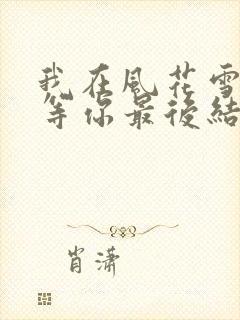 我在風花雪
等你最後結
肖瀟